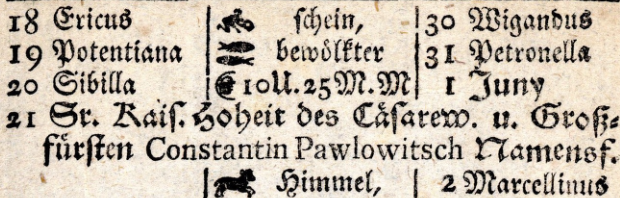 18 Ericus schein, 30 Wigandus
19 Potentiana bewölkter 31 Petronella
20 Sibilla ☾ 10U. 25M. M 1 Juny
21 Sr. Kais. Hoheit des Cäsarew. u. Groß-
fürsten Constantin Pawlowitsch Namensf.
Himmel, 2 Marcellinus